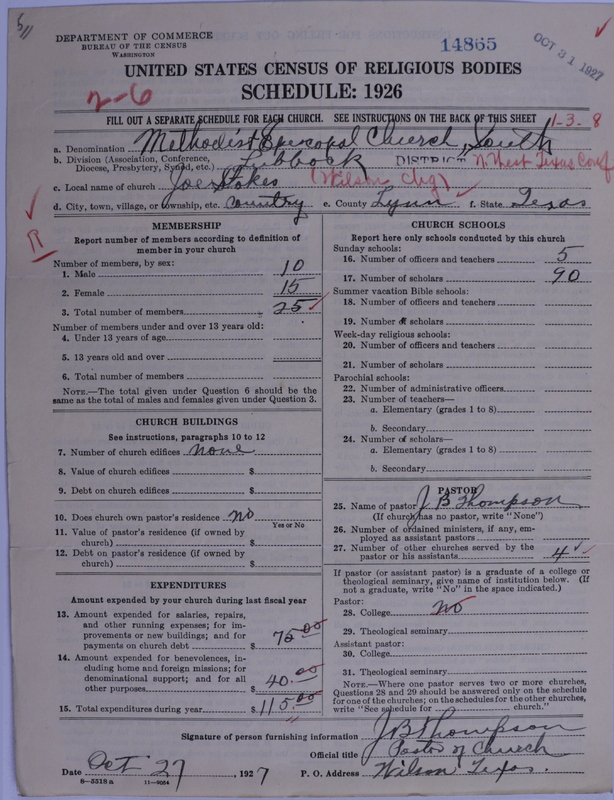 DEPARTMENT OF COMMERCE
BUREAU OF THE CENSUS
WASHINGTON
14865
OCT 31 1927
UNITED STATES CENSUS OF RELIGIOUS BODIES
SCHEDULE: 1926
2-6
FILL OUT A SEPARATE SCHEDULE FOR EACH CHURCH. SEE INSTRUCTIONS ON THE BACK OF THIS SHEET
1-3-8
a. Denomination Methodist Episcopal Church, South
b. Division (Association, Conference, Diocese, Presbytery, Synod, etc.) Lubbock DISTRICT N. West Texas Conf
c. Local name of church Joe Stokes (Wilson Chg)
d. City, town, village, or township, etc. Country e. County Lynn f. State Texas
R
MEMBERSHIP
Report number of members according to definition of
member in your church
Number of members, by sex:
1. Male 10
2. Female 15
3. Total number of members 25
Number of members under and over 13 years old:
4. Under 13 years of age
5. 13 years old and over
6. Total number of members
NOTE.—The total given under Question 6 should be the
same as the total of males and females given under Question 3.
CHURCH BUILDINGS
See instructions, paragraphs 10 to 12
7. Number of church edifices none
8. Value of church edifices $
9. Debt on church edifices $
10. Does church own pastor's residence No
Yes or No
11. Value of pastor's residence (if owned by
church) $
12. Debt on pastor's residence (if owned by
church) $
EXPENDITURES
Amount expended by your church during last fiscal year
13. Amount expended for salaries, repairs,
and other running expenses; for im-
provements or new buildings; and for
payments on church debt $ 75.00
14. Amount expended for benevolences, in-
cluding home and foreign missions; for
denominational support; and for all
other purposes $ 40.00
15. Total expenditures during year $ 115.00
CHURCH SCHOOLS
Report here only schools conducted by this church
Sunday schools:
16. Number of officers and teachers 5
17. Number of scholars 90
Summer vacation Bible schools:
18. Number of officers and teachers
19. Number of scholars
Week-day religious schools:
20. Number of officers and teachers
21. Number of scholars
Parochial schools:
22. Number of administrative officers
23. Number of teachers—
a. Elementary (grades 1 to 8)
b. Secondary
24. Number of scholars—
a. Elementary (grades 1 to 8)
b. Secondary
PASTOR
25. Name of pastor J B Thompson
(If church has no pastor, write "None")
26. Number of ordained ministers, if any, em-
ployed as assistant pastors
27. Number of other churches served by the
pastor or his assistants 4
If pastor (or assistant pastor) is a graduate of a college or
theological seminary, give name of institution below. (If
not a graduate, write "No" in the space indicated.)
Pastor:
28. College No
29. Theological seminary
Assistant pastor:
30. College
31. Theological seminary
NOTE.—Where one pastor serves two or more churches,
Questions 28 and 29 should be answered only on the schedule
for one of the churches; on the schedules for the other churches,
write "See schedule for church."
Signature of person furnishing information J B Thompson
Official title Pastor of Church
Date Oct 27 1927 P. O. Address Wilson Texas.
8-5318 a